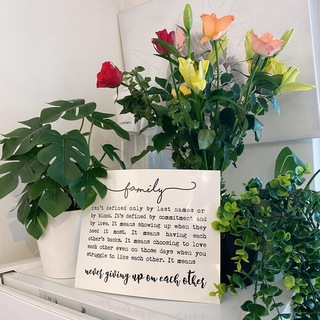 family
isn't defined only by last names or
by blood. It's defined by commitment and
by love. It means showing up when they
need it most. It means having each
other's backs. It means choosing to love
each other even on those days when you
struggle to like each other. It means
never giving up on each other